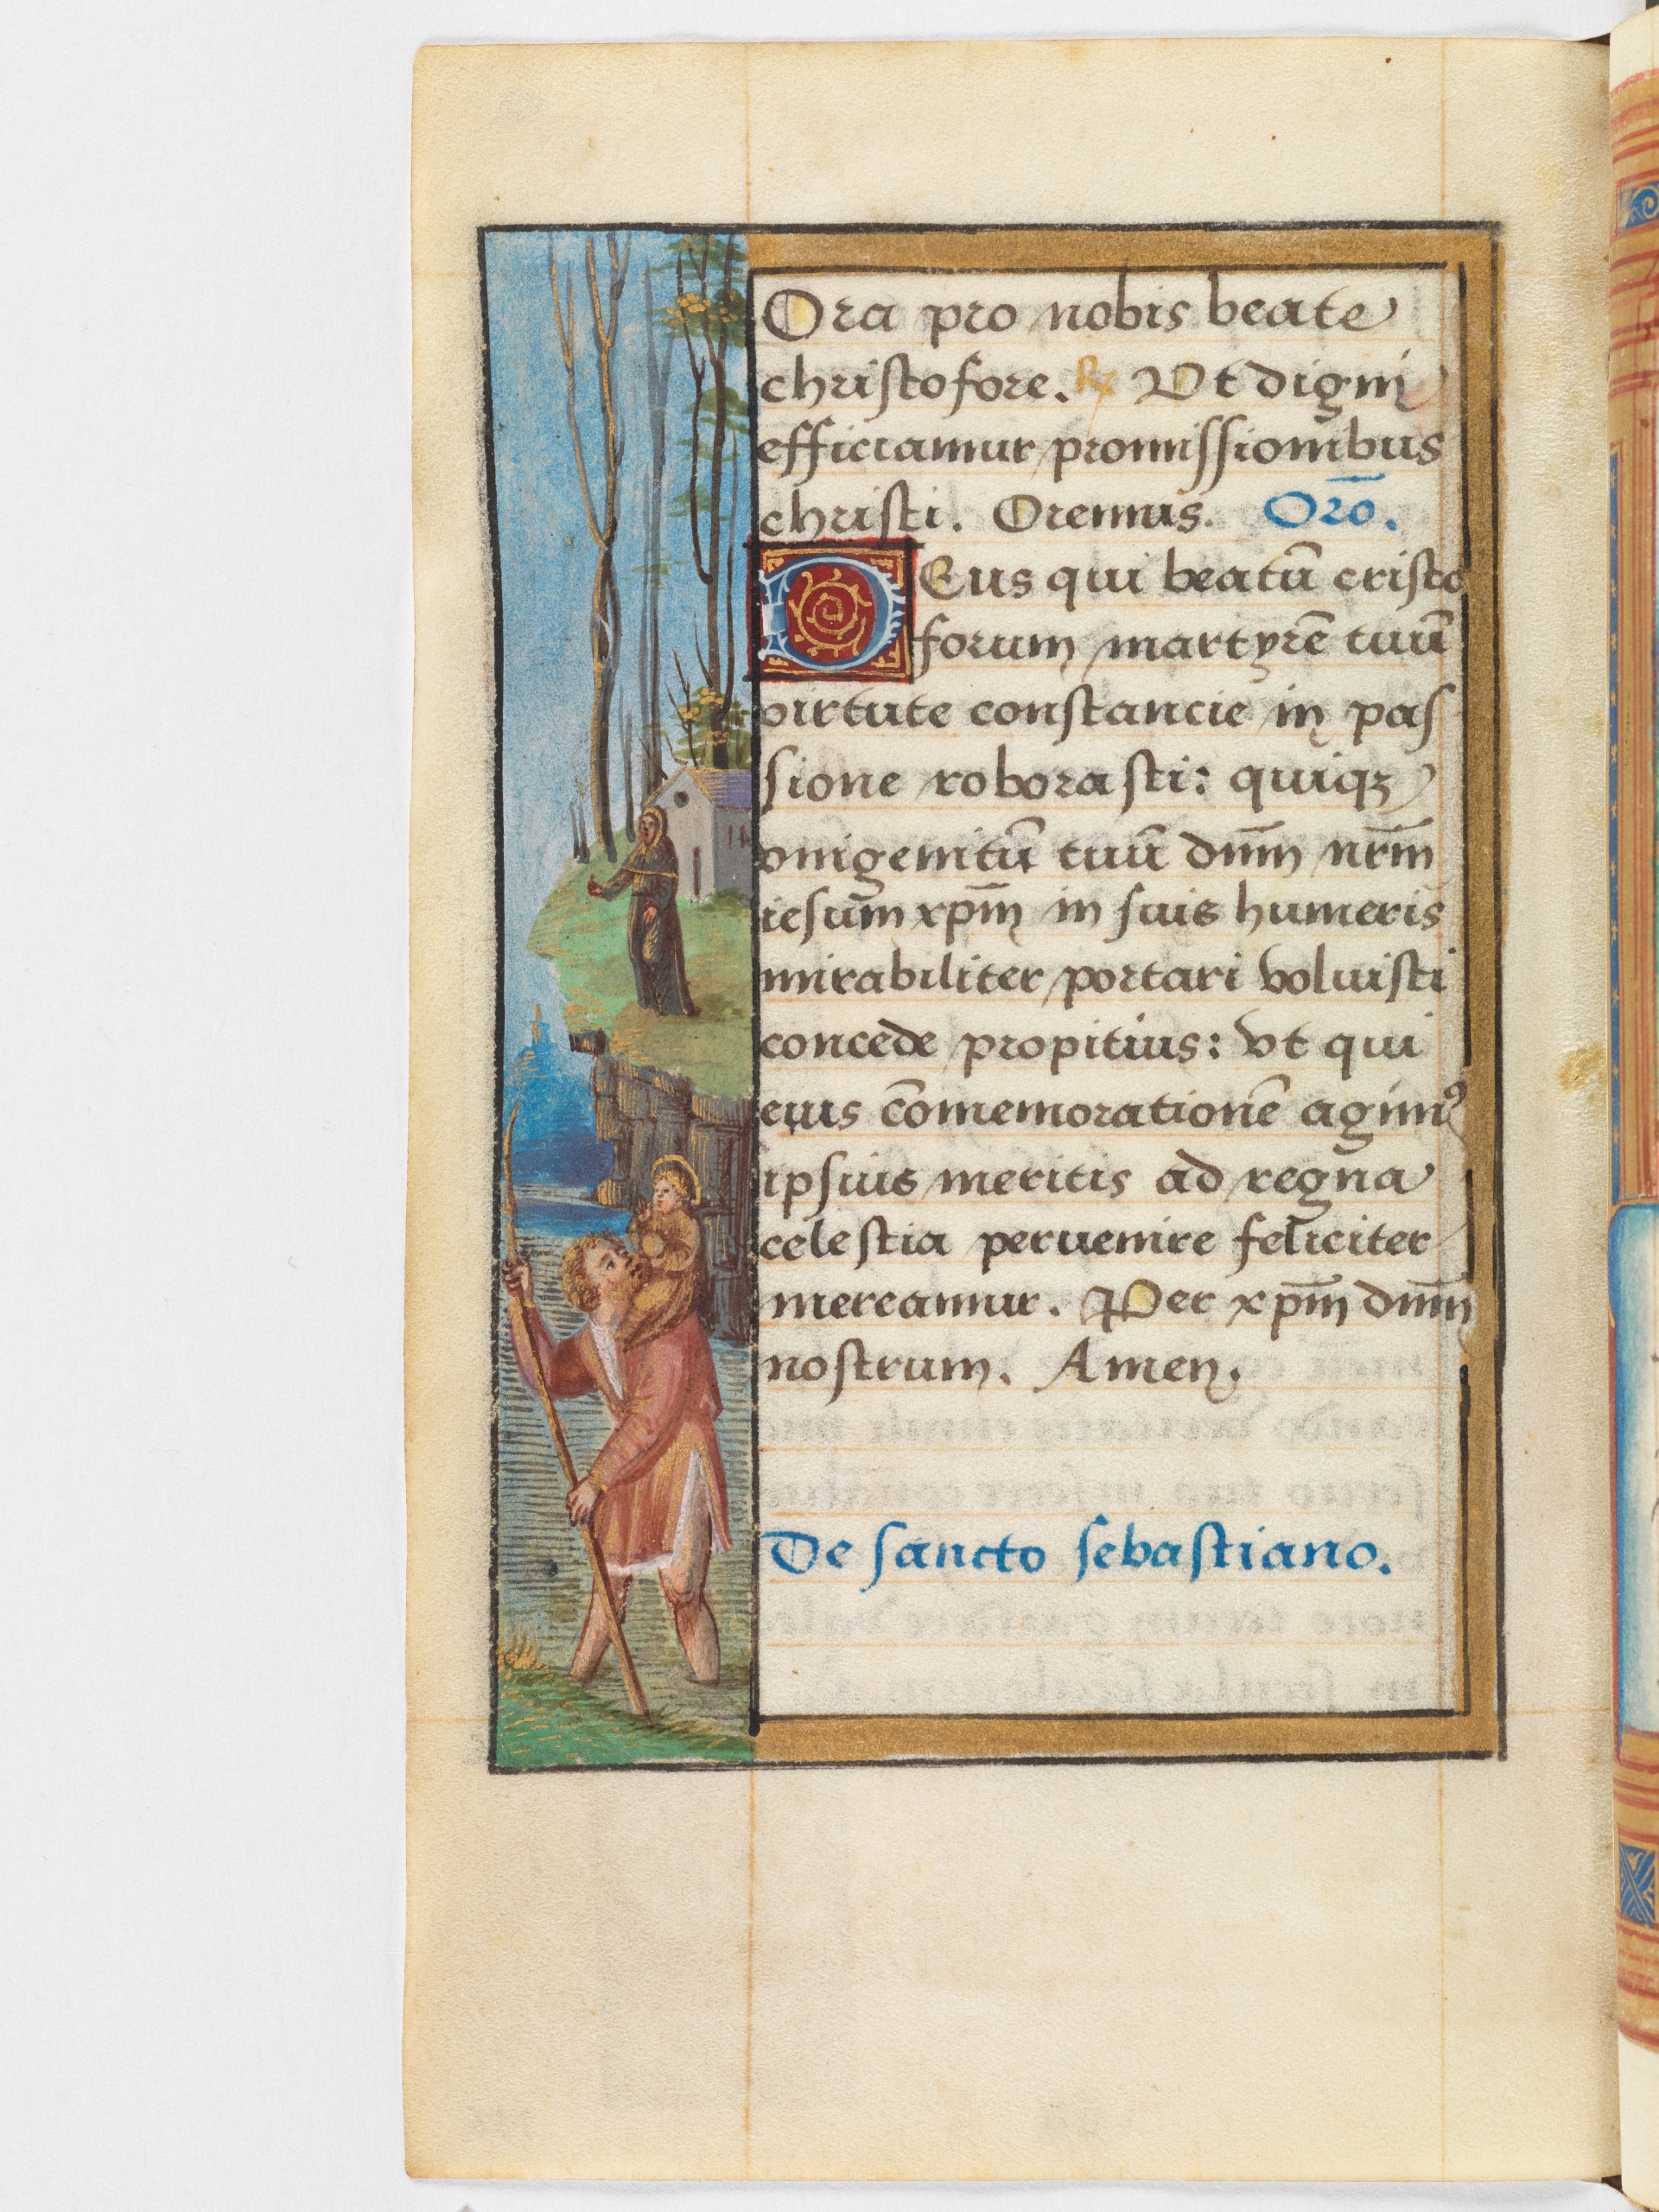 Ora pro nobis beate
christofore. ℟ Vt digni
efficiamur promissionibus
christi. Oremus. Orō.
DEus qui beatū cristo
forum martyrē tuū
virtute constancie in pas
sione roborasti: quiqꝫ
vnigenitū tuū dn̄m nr̄m
iesum xp̄m in suis humeris
mirabiliter portari voluisti
concede propitius: vt qui
eius cōmemorationē agimꝰ
ipsius meritis ad regna
celestia peruenire feliciter
mereamur. Per xp̄m dn̄m
nostrum. Amen.
De sancto sebastiano.